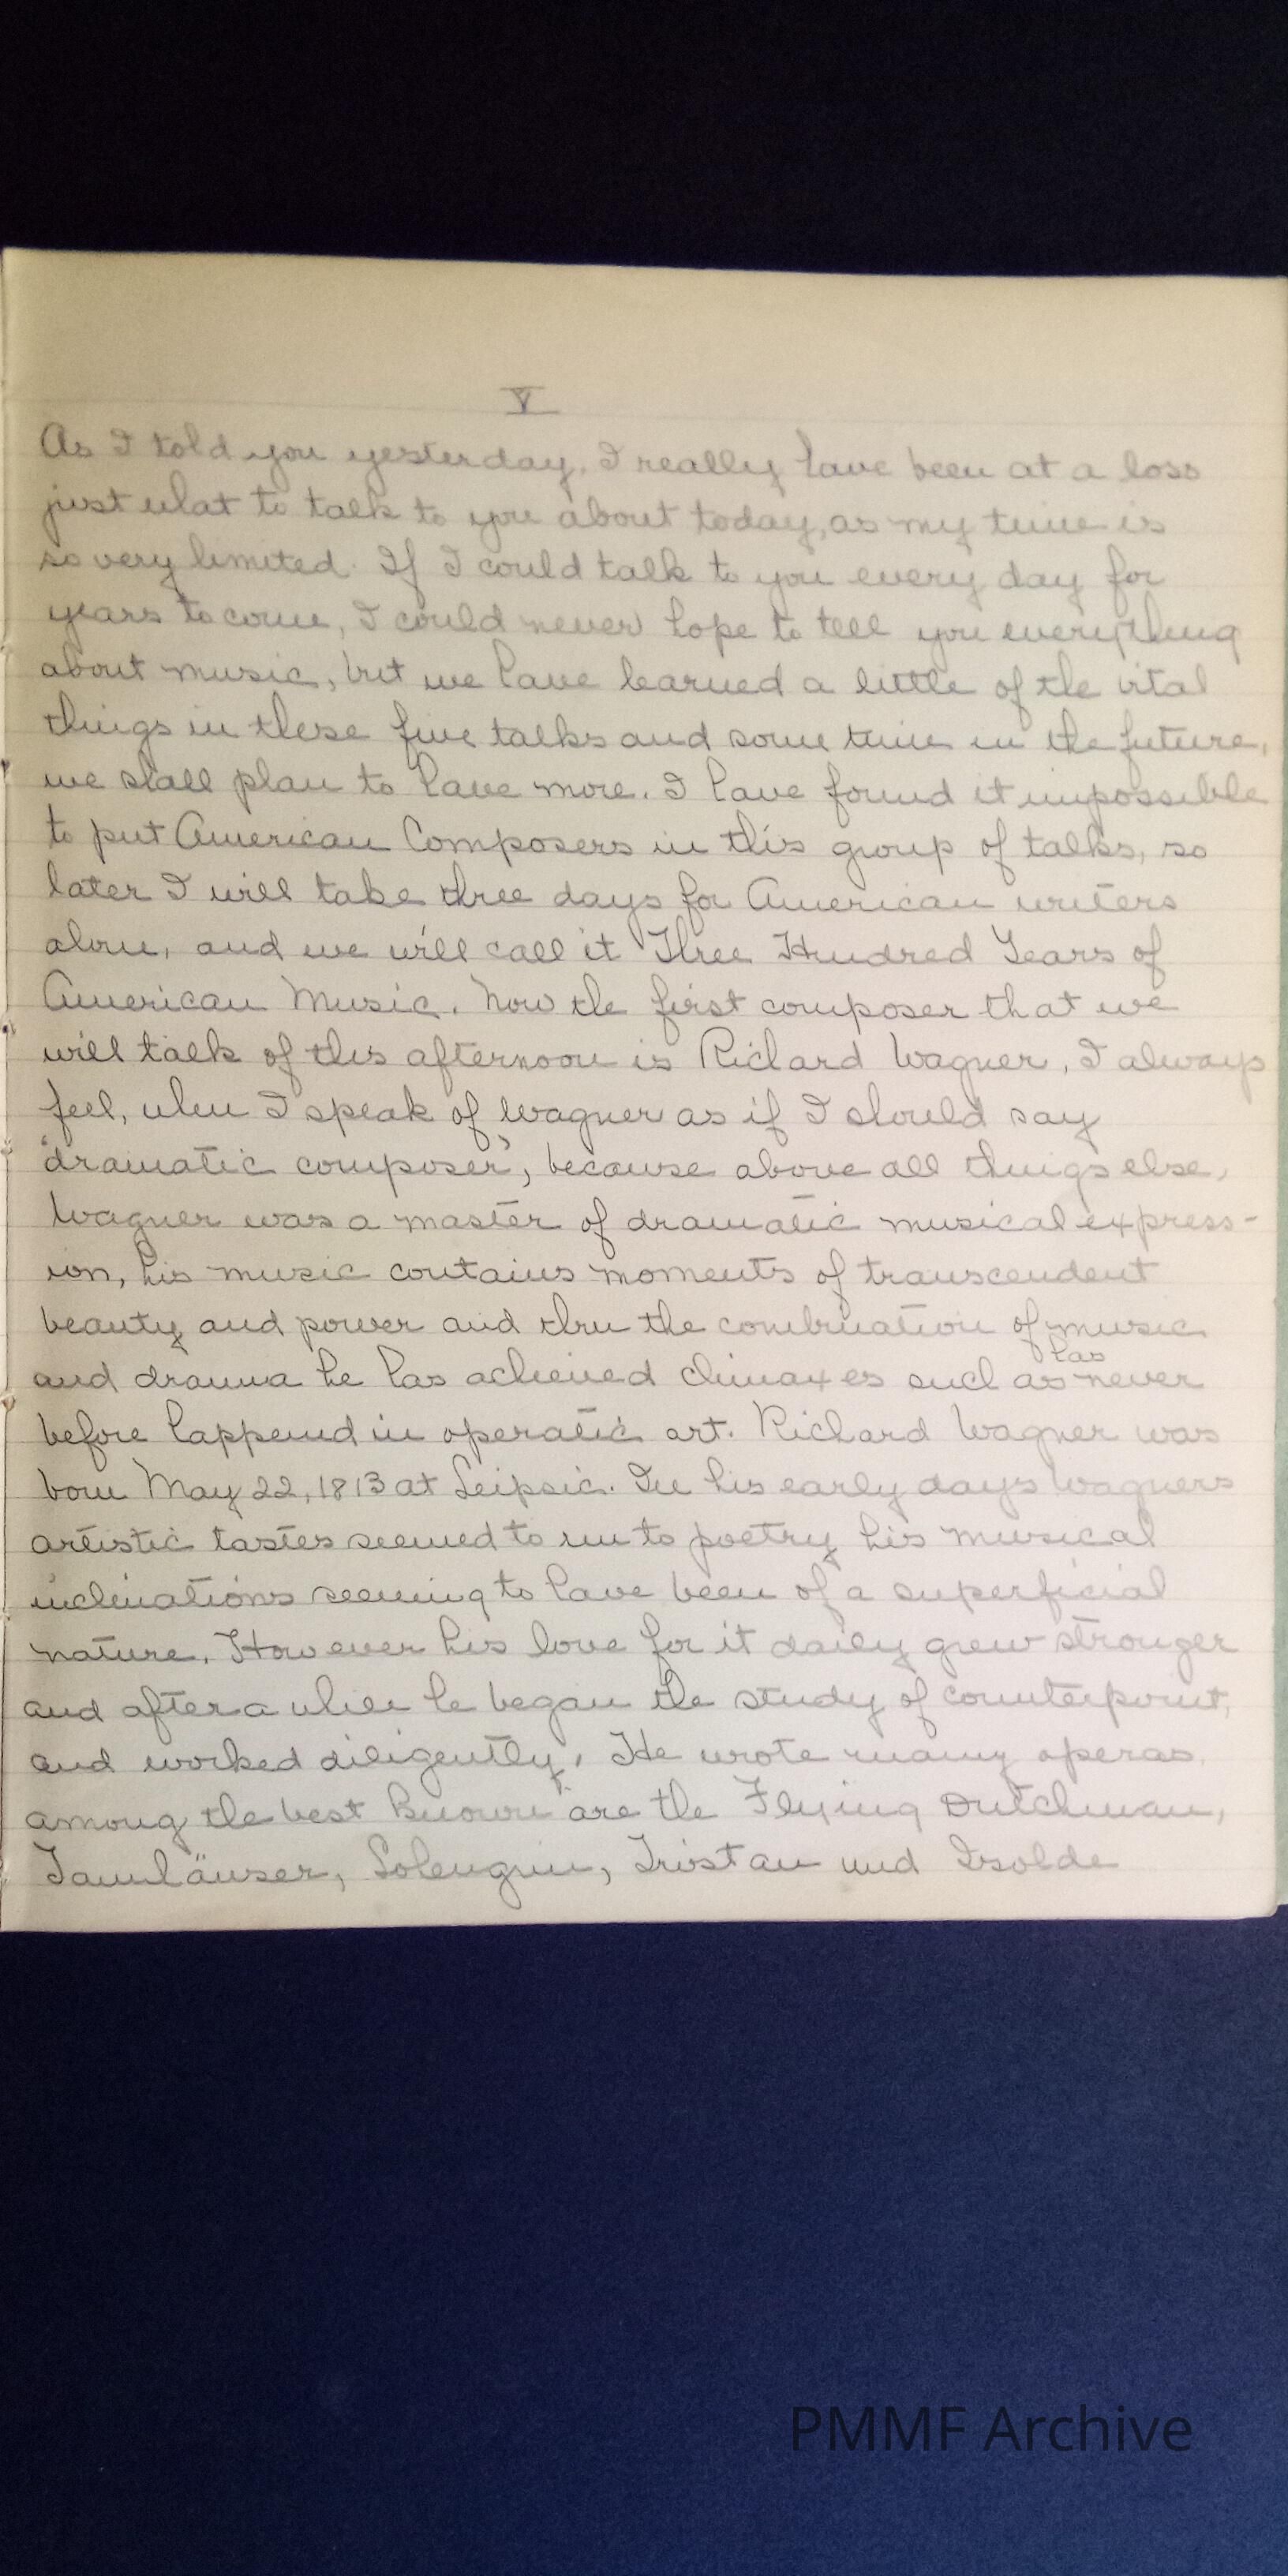 V
As I told you yesterday, I really have been at a loss
just what to talk to you about today, as my time is
so very limited. If I could talk to you every day for
years to come, I could never hope to tell you everything
about music, but we have learned a little of the vital
things in these five talks and some time in the future,
we shall plan to have more. I have found it impossible
to put American Composers in this group of talks, so
later I will take three days for American writers
alone, and we will call it Three Hundred Years of
American Music. Now the first composer that we
will talk of this afternoon is Richard Wagner, I always
feel, when I speak of Wagner as if I should say
"dramatic composer", because above all things else,
Wagner was a master of dramatic musical express-
ion, his music contains moments of transcendent
beauty and power and thru the combination of music
and drama he has achieved climaxes such as has never
before happened in operatic art. Richard Wagner was
born May 22, 1813 at Leipsic. In his early days Wagners
artistic tastes seemed to run to poetry his musical
inclinations seeming to have been of a superficial
nature. However his love for it daily grew stronger
and after a while he began the study of counterpoint,
and worked diligently. He wrote many operas,
among the best known are the Flying Dutchman,
Tannhäuser, Lohengrin, Tristan und Isolde
PMMF Archive